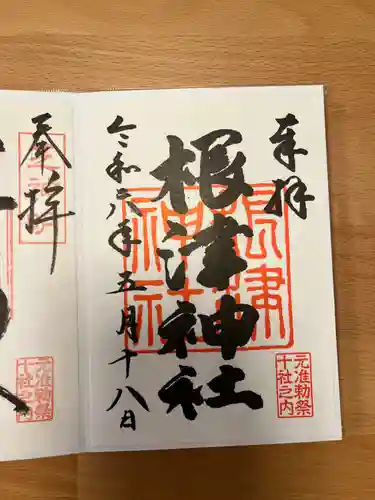 奉拝
根津神社
令和六年五月十八日
根津
神社
元准勅祭
十社之内
奉拝
元准勅祭
十社之内